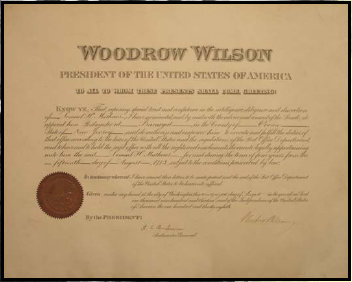 WOODROW WILSON
PRESIDENT OF THE UNITED STATES OF AMERICA
TO ALL TO WHOM THESE PRESENTS SHALL COME, GREETING:
KNOW YE, That reposing special trust and confidence in the intelligence, diligence and discretion
of Lemuel H. I have nominated and by and with the advice and consent of the Senate, do
appoint him Postmaster at in the County of
State of New Jersey and do authorize and empower him to execute and fulfil the duties of
that office according to the laws of the United States and the regulations of the Post Office Department
and to have and to hold the said office with all the rights and emoluments thereunto legally appertaining
unto him the said Lemuel H. for and during the term of four years from the
fifteenth day of August 1913, subject to the conditions prescribed by law.
In testimony whereof I have caused these letters to be made patent and the seal of the Post Office Department
of the United States to be hereunto affixed.
Given under my hand, at the city of Washington, the day of August in the year of our Lord
one thousand nine hundred and thirteen and of the Independence of the United States
of America the one hundred and thirty-eighth.
By the PRESIDENT:
Woodrow Wilson
Postmaster General